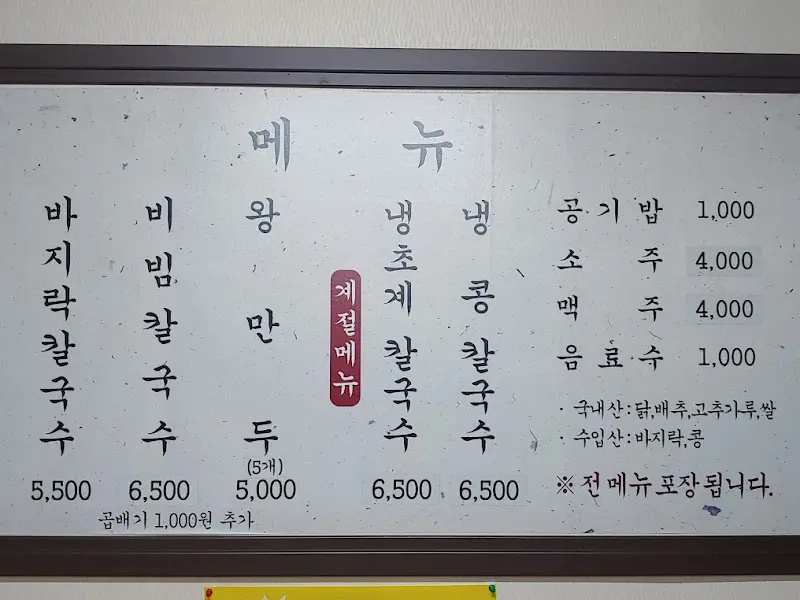 메뉴
바지락칼국수 5,500
비빔칼국수 6,500
왕만두 (5개) 5,000
곱배기 1,000원 추가
계절메뉴
냉초계칼국수 6,500
냉콩칼국수 6,500
공기밥 1,000
소주 4,000
맥주 4,000
음료수 1,000
· 국내산:닭,배추,고추가루,쌀
· 수입산:바지락,콩
※ 전 메뉴 포장 됩니다.